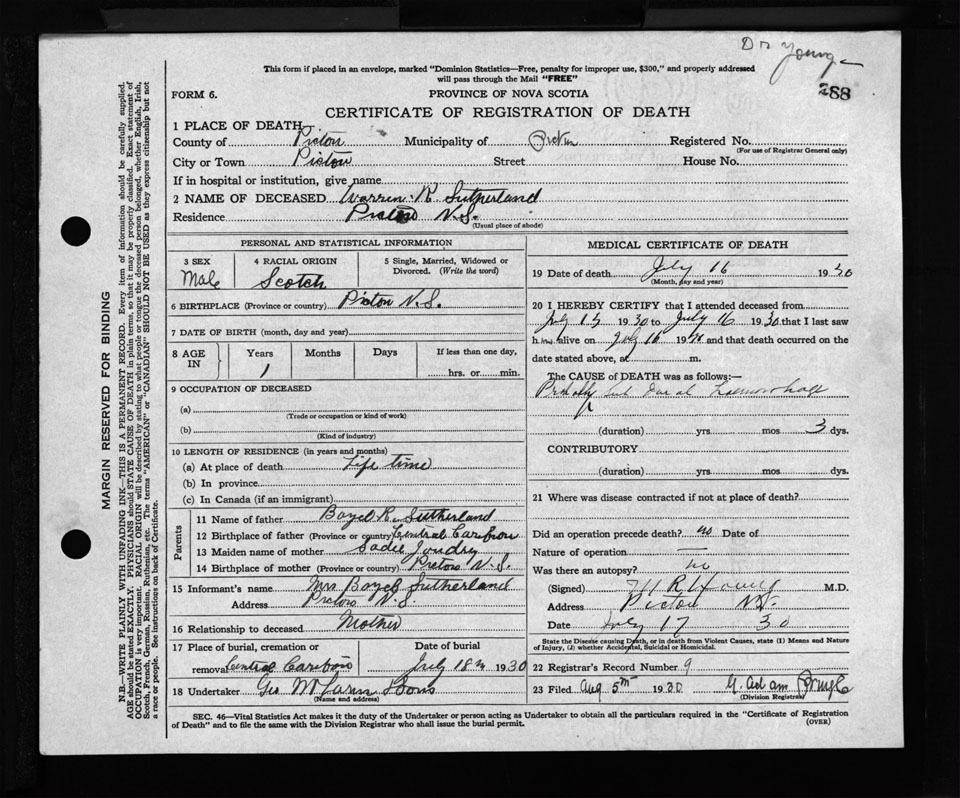 Dr Young
This form if placed in an envelope, marked "Dominion Statistics—Free, penalty for improper use, $300," and properly addressed
will pass through the Mail "FREE"
288
FORM 6.
PROVINCE OF NOVA SCOTIA
CERTIFICATE OF REGISTRATION OF DEATH
1 PLACE OF DEATH
County of Pictou Municipality of Pictou Registered No.
(For use of Registrar General only)
City or Town Pictou Street House No.
If in hospital or institution, give name
2 NAME OF DECEASED Warren R Sutherland
Residence Pictou N.S.
(Usual place of abode)
PERSONAL AND STATISTICAL INFORMATION
3 SEX
Male
4 RACIAL ORIGIN
Scotch
5 Single, Married, Widowed or
Divorced. (Write the word)
6 BIRTHPLACE (Province or country) Pictou N.S.
7 DATE OF BIRTH (month, day and year)
8 AGE
IN
Years
1
Months
Days
If less than one day,
hrs. or min.
9 OCCUPATION OF DECEASED
(a)
(Trade or occupation or kind of work)
(b)
(Kind of industry)
10 LENGTH OF RESIDENCE (in years and months)
(a) At place of death Life time
(b) In province
(c) In Canada (if an immigrant)
Parents
11 Name of father R. Sutherland
12 Birthplace of father (Province or country) Central Caribou
13 Maiden name of mother Sadie Joudry
14 Birthplace of mother (Province or country) Pictou N.S.
15 Informant's name Mrs Sutherland
Address Pictou N.S.
16 Relationship to deceased Mother
17 Place of burial, cremation or
removal Central Caribou
Date of burial
July 18th 1930
18 Undertaker Geo & Sons
(Name and address)
MEDICAL CERTIFICATE OF DEATH
19 Date of death July 16 1930
(Month, day and year)
20 I HEREBY CERTIFY that I attended deceased from
July 15 1930 to July 16 1930 that I last saw
him alive on July 16 19 and that death occurred on the
date stated above, at m.
The CAUSE of DEATH was as follows:—
Probably Sub Dural haemorrhage
(duration) yrs. mos 3 dys.
CONTRIBUTORY
(duration) yrs. mos dys.
21 Where was disease contracted if not at place of death?
Did an operation precede death? no Date of
Nature of operation —
Was there an autopsy? no
(Signed) M R Young M.D.
Address Pictou NS.
Date July 17 30
State the Disease causing Death, or in death from Violent Causes, state (1) Means and Nature
of Injury, (2) whether Accidental, Suicidal or Homicidal.
22 Registrar's Record Number 9
23 Filed Aug 5th 1930
(Division Registrar)
SEC. 46—Vital Statistics Act makes it the duty of the Undertaker or person acting as Undertaker to obtain all the particulars required in the "Certificate of Registration
of Death" and to file the same with the Division Registrar who shall issue the burial permit.
(OVER)
MARGIN RESERVED FOR BINDING
N.B.—WRITE PLAINLY WITH UNFADING INK—THIS IS A PERMANENT RECORD. Every item of information should be carefully supplied.
AGE should be stated EXACTLY. PHYSICIANS should STATE CAUSE OF DEATH in plain terms, so that it may be properly classified. Exact statement of
OCCUPATION is very important. RACIAL ORIGIN will be described by stating to what people or tongue the deceased person belonged, whether English, Irish,
Scotch, French, German, Russian, Ruthenian, etc. The terms "AMERICAN" or "CANADIAN" SHOULD NOT BE USED as they express citizenship but not
a race or people. See instructions on back of Certificate.